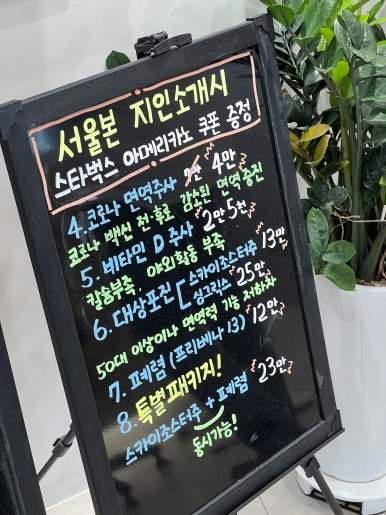 서울본 지인소개시
스타벅스 아메리카노 쿠폰 증정
4. 코로나 면역주사 4만
코로나 백신 전·후로 감소된 면역증진
5. 비타민 D 주사 2만 5천
칼슘부족. 야외활동 부족
6. 대상포진 [ 스카이조스터주 13만
싱그릭스 25만
50대 이상이나 면역력 기능 저하자
7. 폐렴 (프리베나 13) 12만
8. 특별패키지!
스카이조스터주 + 폐렴 23만
동시가능!